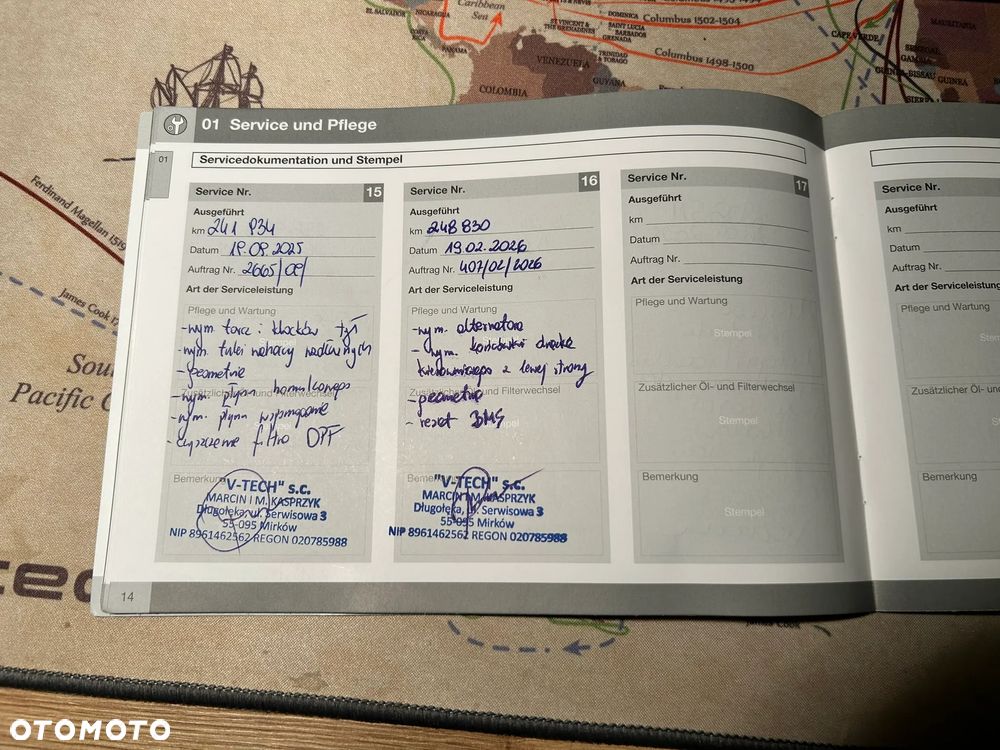 Caribbean
Sea
EL SALVADOR
NICARAGUA
COSTA
RICA
PANAMA
ST.VINCENT &
THE GRENADINES
DOMINICA
SAINT LUCIA
BARBADOS
GRENADA
TRINIDAD
& TOBAGO
Columbus 1502-1504
Columbus 1498-1500
VENEZUELA
GUYANA
COLOMBIA
CAPE VERDE
MAURITANIA
SENEGAL
GAMBIA
GUINEA-BISSAU
GUINEA
SIERRA
Ferdinand Magellan 1519
James Cook 17
Sou
Pacific O
01 Service und Pflege
01
Servicedokumentation und Stempel
Service Nr. 15
Ausgeführt
km 241 934
Datum 19.09.2025
Auftrag Nr. 2665/09/
Art der Serviceleistung
Pflege und Wartung
- wym tarcz i klocków tył
- wym. tulei wahaczy
- geometria
- wym. płynu hamulcowego
- wym. płynu wspomagania
- czyszczenie filtra DPF
Zusätzlicher Öl- und Filterwechsel
Stempel
Bemerkung
"V-TECH" s.c.
MARCIN I M. KASPRZYK
Długołęka, ul. Serwisowa 3
55-095 Mirków
NIP 8961462562 REGON 020785988
Service Nr. 16
Ausgeführt
km 248 830
Datum 19.02.2026
Auftrag Nr. 407/02/2026
Art der Serviceleistung
Pflege und Wartung
- wym. alternatora
- wym. końcówki drążka
kierowniczego z lewej strony
- geometria
- reset BMS
Zusätzlicher Öl- und Filterwechsel
Stempel
Bemerkung
"V-TECH" s.c.
MARCIN I M. KASPRZYK
Długołęka, ul. Serwisowa 3
55-095 Mirków
NIP 8961462562 REGON 020785988
Service Nr. 17
Ausgeführt
km
Datum
Auftrag Nr.
Art der Serviceleistung
Pflege und Wartung
Stempel
Zusätzlicher Öl- und Filterwechsel
Stempel
Bemerkung
Stempel
Service Nr.
Ausgeführt
km
Datum
Auftrag Nr.
Art der Serviceleistung
Pflege und Wartung
Zusätzlicher Öl- und
Bemerkung
14
tec
James Cook
OTOMOTO